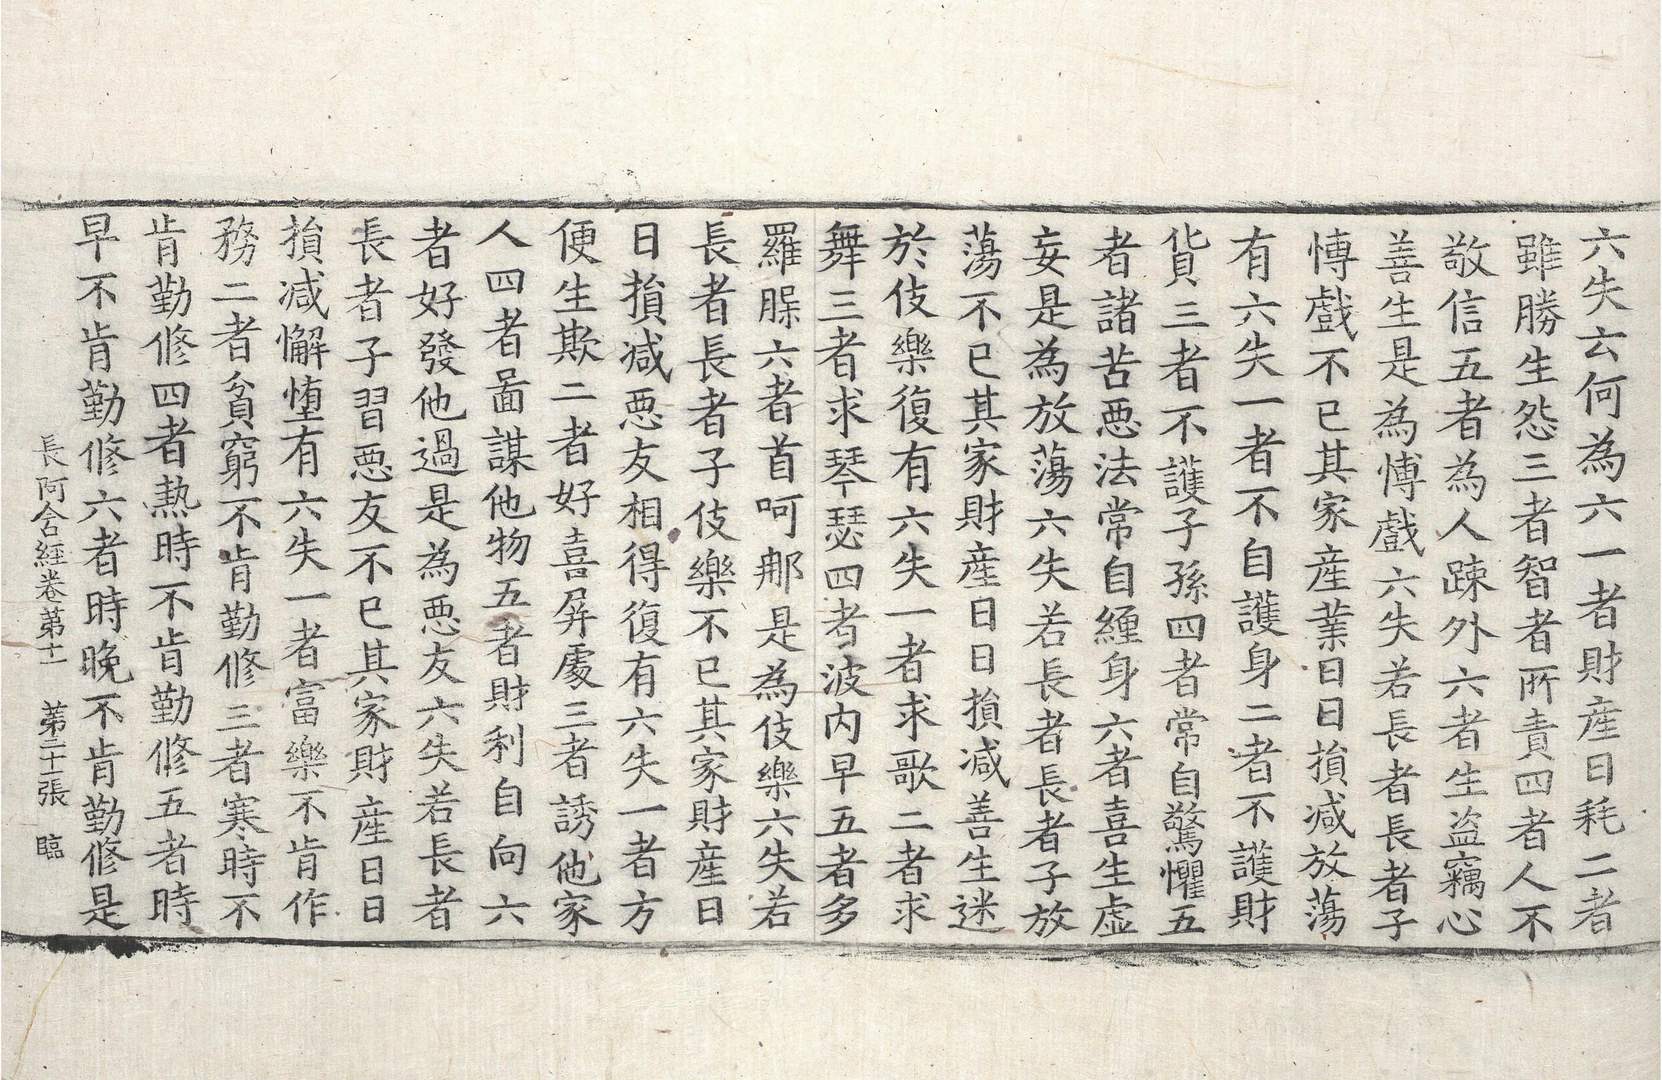 六失云何為六一者財產日耗二者
雖勝生怨三者智者所責四者人不
敬信五者為人踈外六者生盜竊心
善生是為愽戲六失若長者長者子
愽戲不已其家產業日日損減放蕩
有六失一者不自護身二者不護財
貨三者不護子孫四者常自驚懼五
者諸苦惡法常自纏身六者喜生虛
妄是為放蕩六失若長者長者子放
蕩不已其家財產日日損減善生迷
於伎樂復有六失一者求歌二者求
舞三者求琴瑟四者波内早五者多
羅腂六者首呵那是為伎樂六失若
長者長者子伎樂不已其家財產日
日損減惡友相得復有六失一者方
便生欺二者好喜屏處三者誘他家
人四者啚謀他物五者財利自向六
者好發他過是為惡友六失若長者
長者子習惡友不已其家財產日日
損減懈墮有六失一者富樂不肯作
務二者貧窮不肯勤修三者寒時不
肯勤修四者熱時不肯勤修五者時
早不肯勤修六者時晚不肯勤修是
長阿含經卷第十一 第二十一張 臨